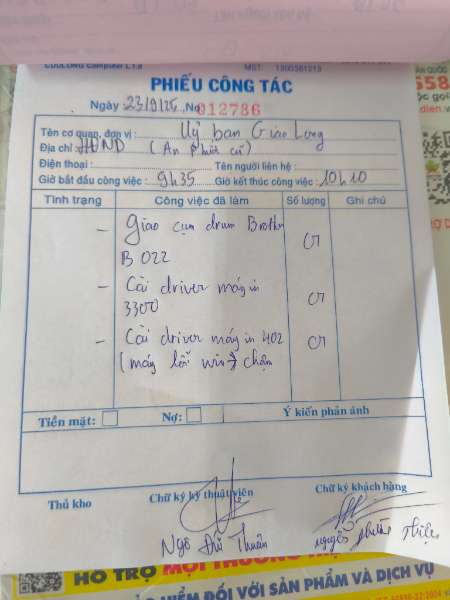 CUULONG Computer L.T.D MST: 1300361213
PHIẾU CÔNG TÁC
Ngày 23/9/25 No 012786
Tên cơ quan, đơn vị : Uỷ ban Giao Long
Địa chỉ : HĐND (An Phước cũ)
Điện thoại : Tên người liên hệ :
Giờ bắt đầu công việc : 9h35 Giờ kết thúc công việc : 10h10
Tình trạng Công việc đã làm Số lượng Ghi chú
- Giao cụm drum Brother
B022
- Cài driver máy in
3300
- Cài driver máy in 402
(máy lỗi win → chậm
Tiền mặt: Nợ: Ý kiến phản ánh
Thủ kho Chữ ký kỹ thuật viên Chữ ký khách hàng
Ngô Đức Thuân
HỖ TRỢ MỌI THƯƠNG
ĐỐI VỚI SẢN PHẨM VÀ DỊCH VỤ